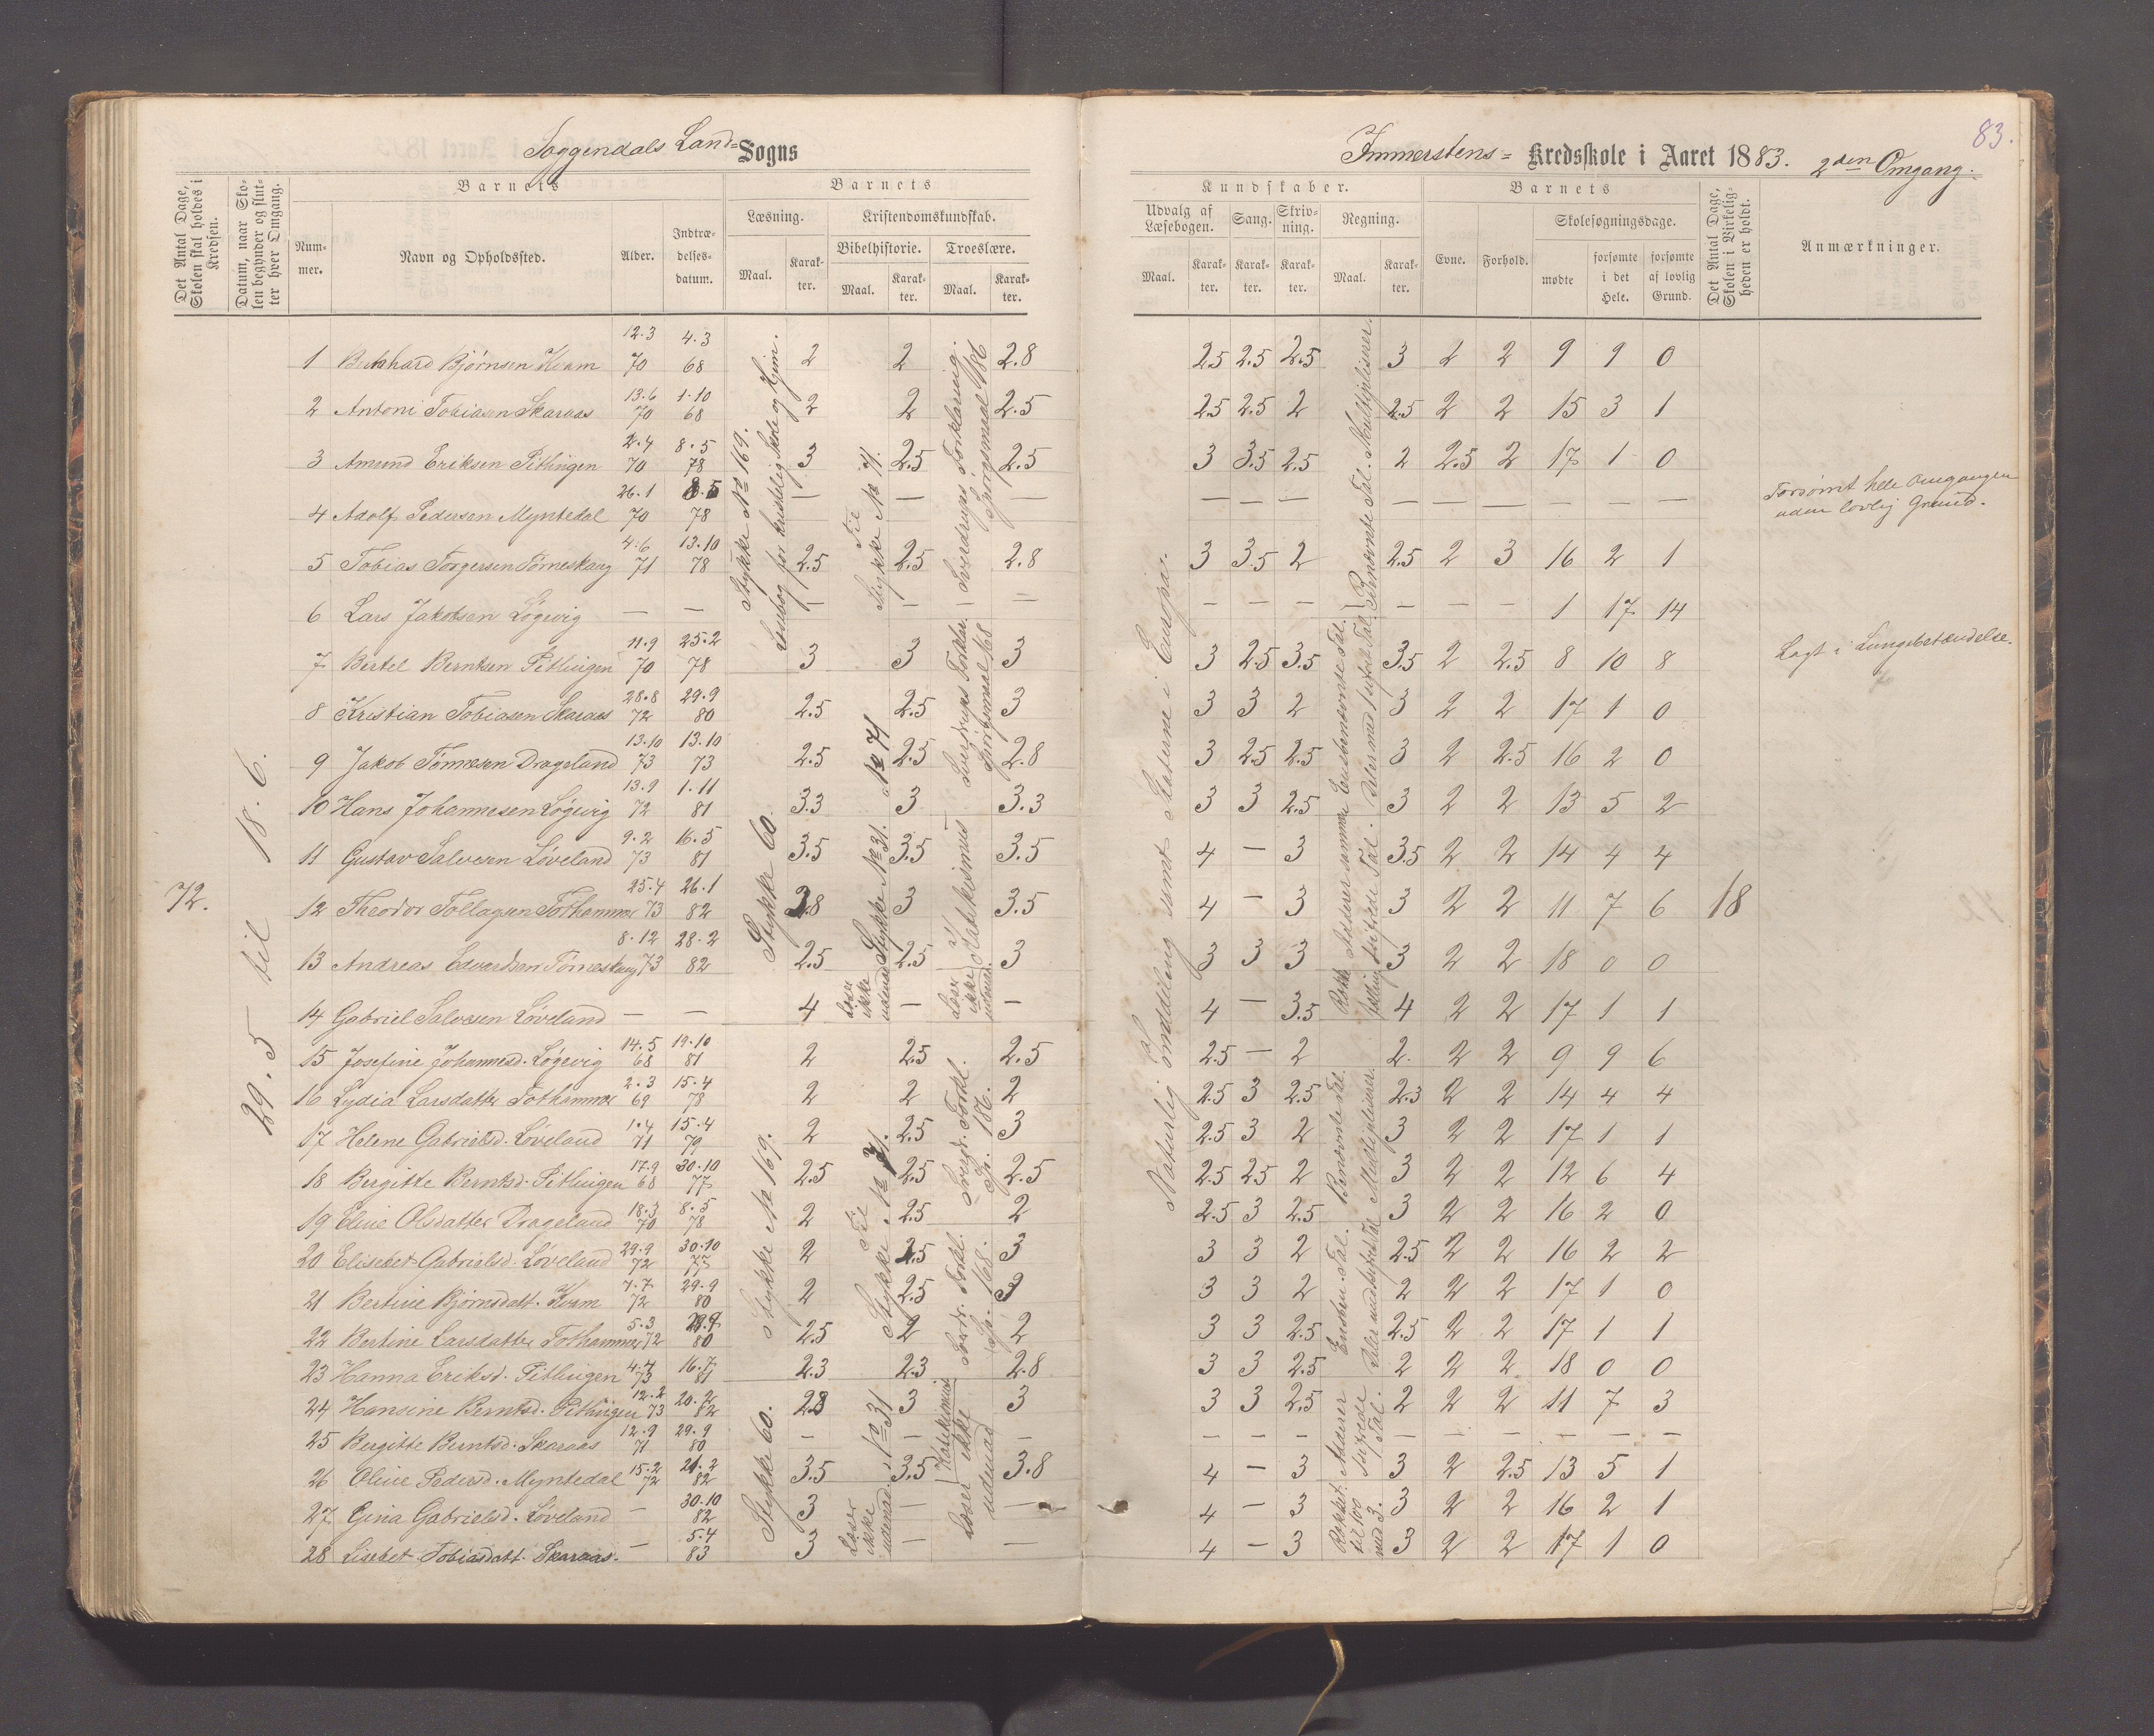 83.
Soggendals Land= Sogns
Immerstens= Kredsskole i Aaret 1883. 2den Omgang.
Det Antal Dage, Skolen skal holdes i Kredsen.
Datum, naar Skolen begynder og slutter hver Omgang.
Barnets
Nummer.
Navn og Opholdssted.
Alder.
Indtrædelsesdatum.
Barnets
Læsning.
Maal.
Karakter.
Kristendomskundskab.
Bibelhistorie.
Maal.
Karakter.
Troeslære.
Maal.
Karakter.
Kundskaber.
Udvalg af Læsebogen.
Maal.
Karakter.
Sang.
Karakter.
Skrivning.
Karakter.
Regning.
Maal.
Karakter.
Barnets
Evne.
Forhold.
Skolesøgningsdage.
mødte
forsømte i det Hele.
forsømte af lovlig Grund.
Det Antal Dage, Skolen i Virkeligheden er holdt.
Anmærkninger.
72.
29.5 til 18.6.
1 Bernhard Bjørnsen Kvam 12.3 70 4.3 68 2 2 2.8 2.5 2.5 2.5 3 2 2 9 9 0
2 Antoni Tobiasen Skaraas 13.6 70 1.10 68 2 2 2.5 2.5 2.5 2 2.5 2 2 15 3 1
3 Amund Eriksen Pitlingen 2.4 70 8.5 78 3 2.5 2.5 3 3.5 2.5 2 2.5 2 17 1 0
4 Adolf Pedersen Myntedal 26.1 70 8.5 78 — — — — — — — — — — — — Forsømt hele Omgangen uden lovlig Grund.
5 Tobias Torgersen Tørneskaug 4.6 71 13.10 78 2.5 2.5 2.8 3 3.5 2 2.5 2 3 16 2 1
6 Lars Jakobsen Løgevig — — — — — — — — — — — 1 17 14
7 Bertel Berntsen Pitlingen 11.9 70 25.2 78 3 3 3 3 2.5 3.5 3.5 2 2.5 8 10 8 Lagt i Lungebetændelse.
8 Kristian Tobiasen Skaraas 28.8 72 29.9 80 2.5 2.5 3 3 3 2 3 2 2 17 1 0
9 Jakob Tønnesen Drageland 13.10 73 13.10 73 2.5 2.5 2.8 3 2.5 2.5 3 2 2.5 16 2 0
10 Hans Johannesen Løgevig 13.9 72 1.11 81 3.3 3 3.3 3 3 2.5 3 2 2 13 5 2
11 Gustav Salvesen Løveland 9.2 73 16.5 81 3.5 3.5 3.5 4 — 3 3.5 2 2 14 4 4
12 Theodor Tollagsen Tothammer 25.4 73 26.1 82 3.8 3 3.5 4 — 3 3 2 2 11 7 6 18
13 Andreas Edvardsen Tørneskaug 8.12 73 28.2 82 2.5 2.5 3 3 3 3 3 2 2 18 0 0
14 Gabriel Salvesen Løveland — — 4 — — 4 — 3.5 4 2 2 17 1 1
15 Josefine Johannesd. Løgevig 14.5 68 19.10 81 2 2.5 2.5 2.5 — 2 2. 2 2 9 9 6
16 Lydia Larsdatter Tothammer 2.3 69 15.4 78 2 2 2 2.5 3 2.5 2.3 2 2 14 4 4
17 Helene Gabrielsd. Løveland 1.4 71 15.4 79 2 2.5 3 2.5 3 2 3 2 2 17 1 1
18 Bergitte Berntsd. Pitlingen 17.9 68 30.10 77 2.5 2.5 2.5 2.5 2.5 2 3 2 2 12 6 4
19 Eline Olsdatter Drageland 18.3 70 8.5 78 2 2.5 2 2.5 3 2.5 3 2 2 16 2 0
20 Elisebet Gabrielsd. Løveland 29.9 72 30.10 77 2 2.5 3 3 3 2 2.5 2 2 16 2 2
21 Bertine Bjørnsdatt. Kvam 7.7 72 29.9 80 2 2.5 3 3 3 2 2 2 2 17 1 0
22 Bertine Larsdatter Tothammer 5.3 72 29.9 80 2.5 2 2 3 3 2.5 2.5 2 2 17 1 1
23 Hanna Eriksd. Pitlingen 4.4 73 16.7 81 2.3 2.3 2.8 3 3 2.5 2 2 2 18 0 0
24 Hansine Berntsd. Pitlingen 12.2 73 20.2 82 2.8 3 3 3 3 2.5 2 2 2 11 7 3
25 Bergitte Berntsd. Skaraas 12.9 71 29.9 80 — — — — — — — — — — — —
26 Oline Pedersd. Myntedal 15.2 72 21.2 82 3.5 3.5 3.8 4 — 3 3 2 2.5 13 5 1
27 Gina Gabrielsd. Løveland — 30.10 82 3 — — 4 — 3 3 2 2 16 2 1
28 Lisebet Tobiasdatt. Skaraas. — 5.4 83 3 — — 4 — 3 3 2 2 17 1 0
Stykke No 169.
Læsebog for kristelig Skole og Hjem.
Stykke 60.
Stykke No 169.
Stykke 60.
Til Stykke No 71.
No 71
Stykke No 31.
Læser ikke udenad
Til Stykke No 71.
No 31
Læser ikke udenad.
Sverdrups Forklaring. Spørgsmaal 186
Sverdrups Forklar. Spørgsmaal 168
Katekismus
Læser ikke udenad.
Sverdr. Forkl. Sp. 186.
Sverdr. Forkl. Sp. 168.
Katekismus
Læser ikke udenad
Naturlig Inddeling samt Staterne i Europa.
Benævnte Tal. Multipliserer.
Adderer samme Ensbenævnte Tal.
Deler med 1 sifret Tal.
Benævnte Tal. Multipliserer.
Ensben. Tal.
Adderer 1 sifrede Tal.
Rækket til 100 med 3.